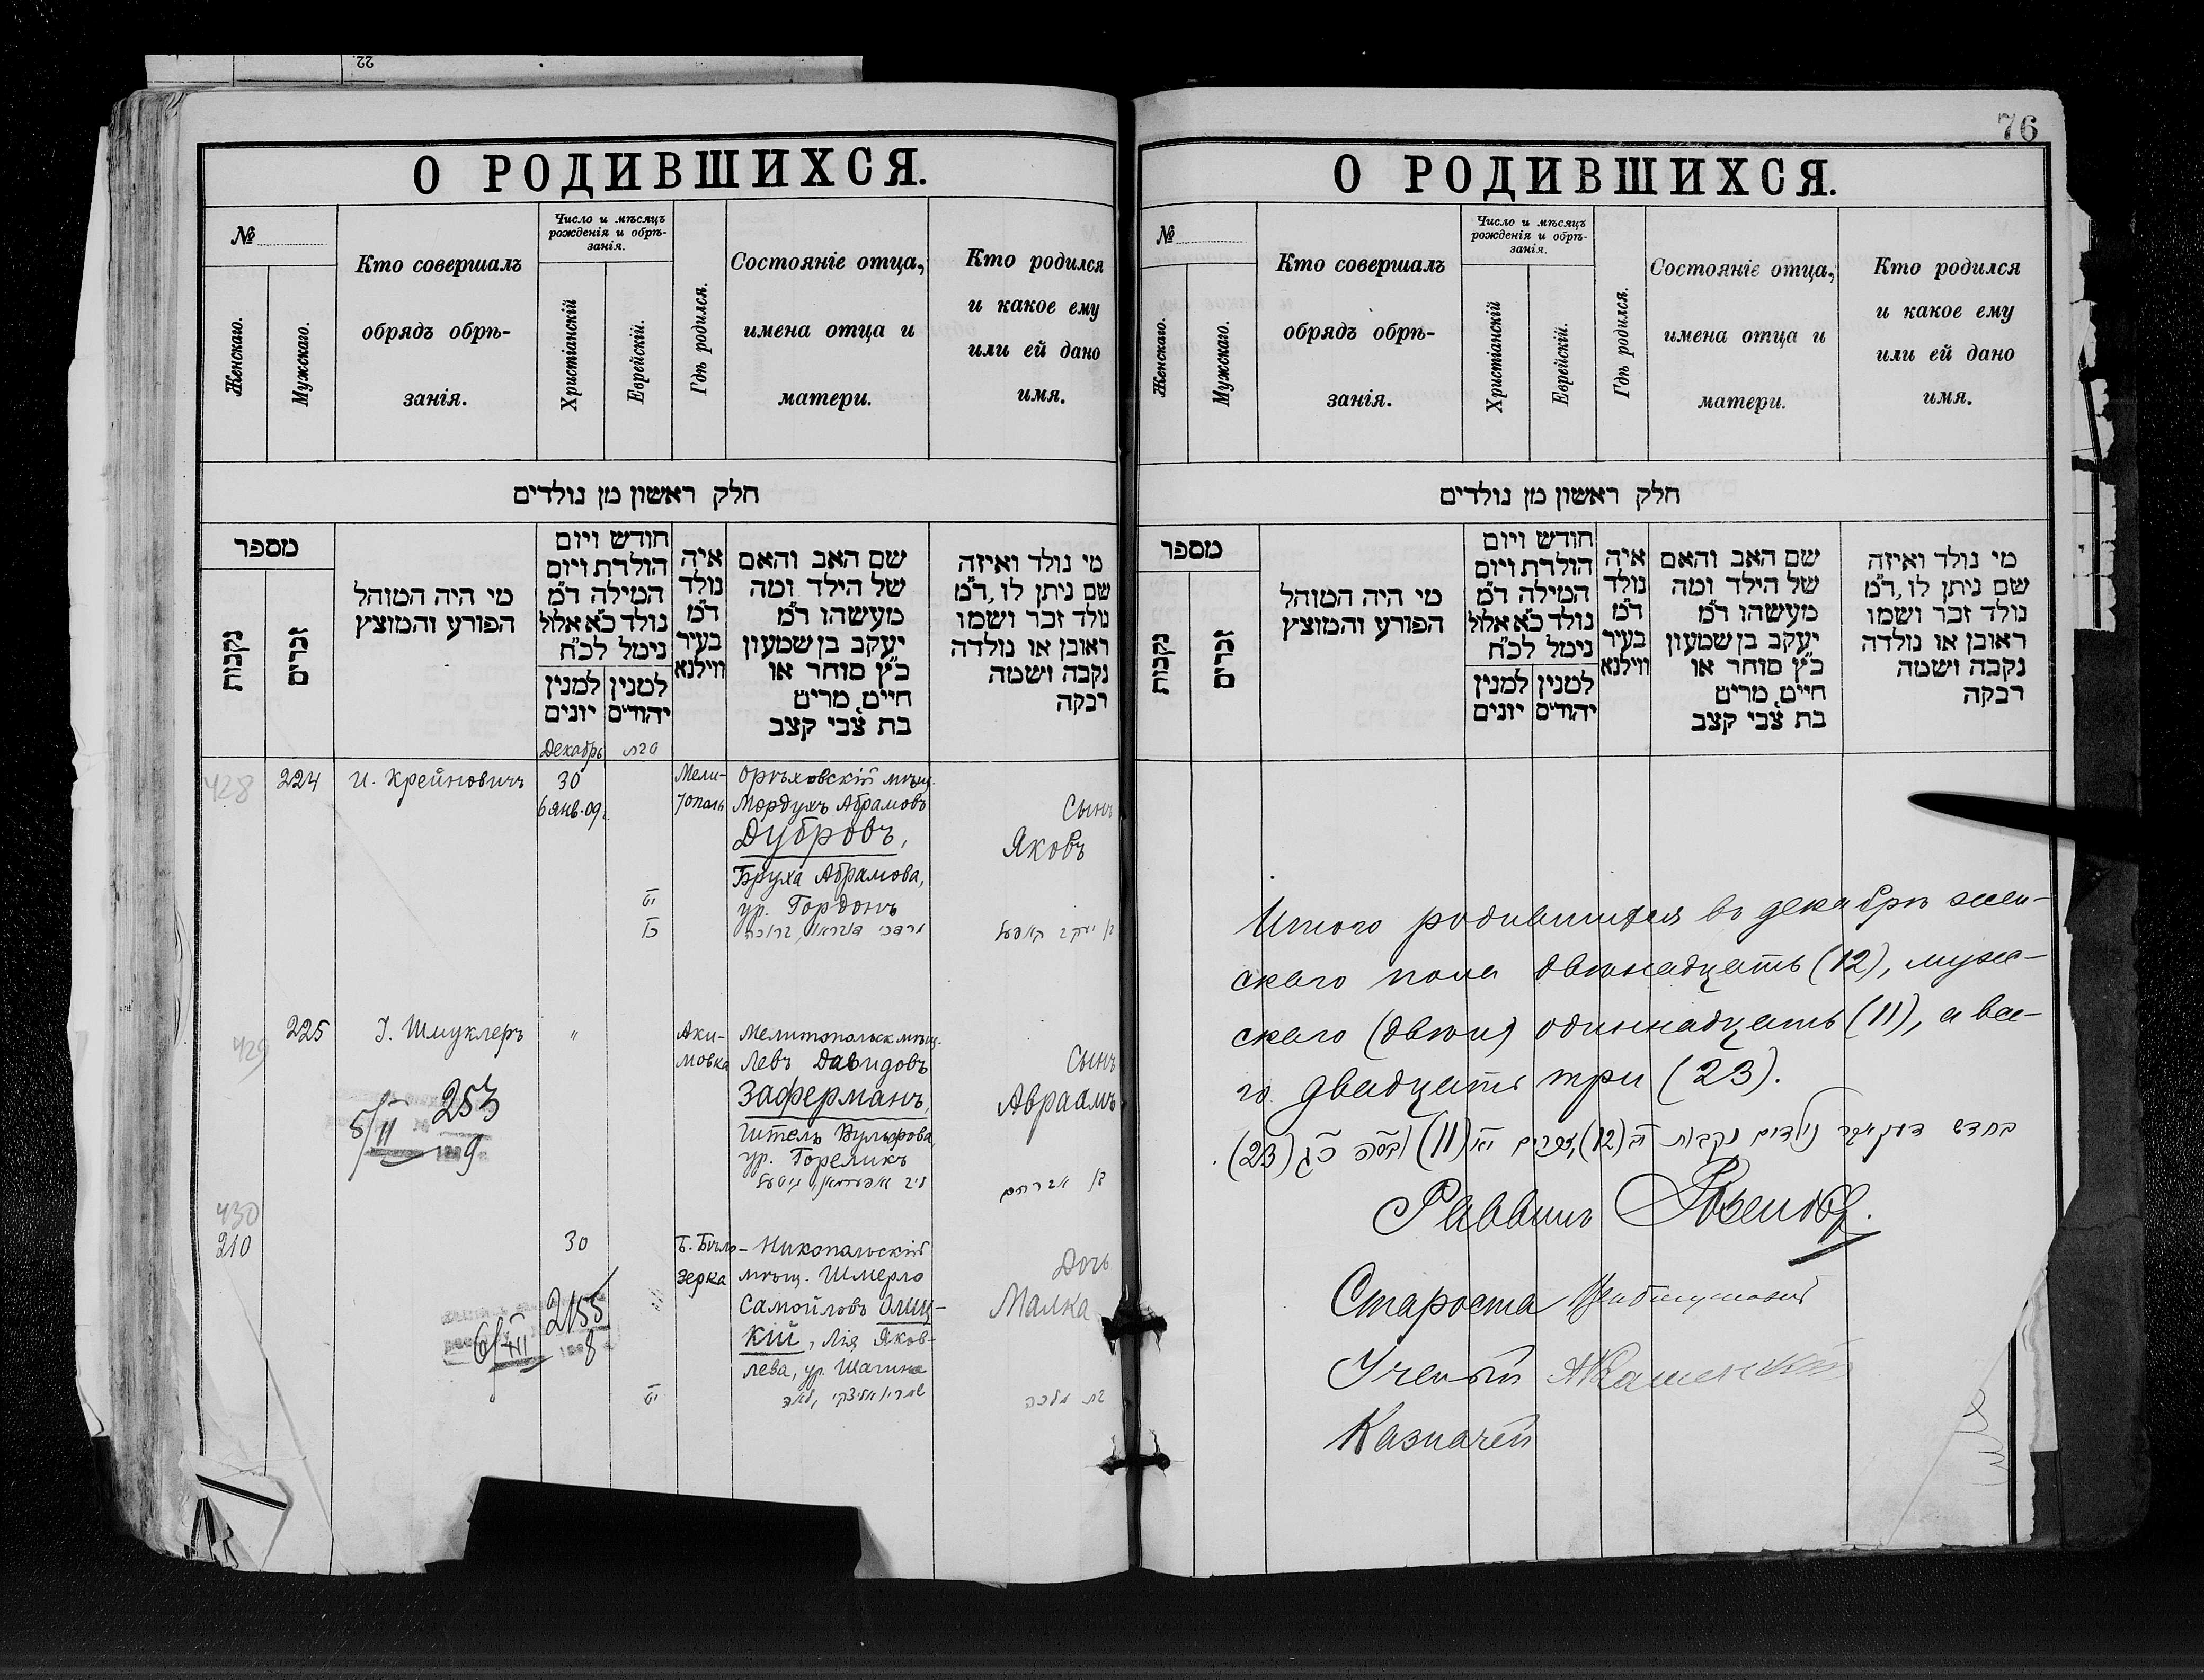 22
О РОДИВШИХСЯ.
№
Женскаго.
Мужскаго.
Кто совершалъ
обрядъ обрѣ-
занія.
Число и мѣсяцъ
рожденія и обрѣ-
занія.
Христіанскій
Еврейскій.
Гдѣ родился.
Состояніе отца,
имена отца и
матери.
Кто родился
и какое ему
или ей дано
имя.
חלק ראשון מן נולדים
מספר
נקבות
זכרים
מי היה המוהל
הפורע והמוצץ
חודש ויום
הולדת ויום
המילה ד״מ
נולד כ״א אלול
נימל לכ״ח
למנין
יונים
למנין
יהודים
איה
נולד
ד״מ
בעיר
ווילנא
שם האב והאם
של הילד ומה
מעשהו ד״מ
יעקב בן שמעון
כ״ץ סוחר או
חייט, מרים
בת צבי קצב
מי נולד ואיזה
שם ניתן לו, ד״מ
נולד זכר ושמו
ראובן או נולדה
נקבה ושמה
רבקה
Декабрь
טבת
428
224
И. Крейновичъ
30
6 янв. 09 г.
Мели-
тополь
Орѣховскій мѣщ.
Мордухъ Абрамовъ
Дубровъ,
Бруха Абрамова,
ур. Гордонъ
Сынъ
Яковъ
יט
כו
429
225
І. Шмуклеръ
"
Аки-
мовка
Мелитопольск. мѣщ.
Левъ Давидовъ
Заферманъ,
Гитель
ур. Гореликъ
Сынъ
Авраамъ
בן אברהם
253
5/II 9
430
210
30
Б. Бѣло-
зерка
Никопольскій
мѣщ. Шмерло
Самойловъ Олиц-
кій, Лія Яков-
лева, ур. Шагина
Дочь
Малка
בת מלכה
יט
2155
6/III 8
76
О РОДИВШИХСЯ.
№
Женскаго.
Мужскаго.
Кто совершалъ
обрядъ обрѣ-
занія.
Число и мѣсяцъ
рожденія и обрѣ-
занія.
Христіанскій
Еврейскій.
Гдѣ родился.
Состояніе отца,
имена отца и
матери.
Кто родился
и какое ему
или ей дано
имя.
חלק ראשון מן נולדים
מספר
נקבות
זכרים
מי היה המוהל
הפורע והמוצץ
חודש ויום
הולדת ויום
המילה ד״מ
נולד כ״א אלול
נימל לכ״ח
למנין
יונים
למנין
יהודים
איה
נולד
ד״מ
בעיר
ווילנא
שם האב והאם
של הילד ומה
מעשהו ד״מ
יעקב בן שמעון
כ״ץ סוחר או
חייט, מרים
בת צבי קצב
מי נולד ואיזה
שם ניתן לו, ד״מ
נולד זכר ושמו
ראובן או נולדה
נקבה ושמה
רבקה
Итого родившихся въ декабрѣ жен-
скаго пола двѣнадцать (12), муж-
скаго одиннадцать (11), а все-
го двадцать три (23).
בחדש דעקאבר נולדים נקבות יב (12), זכרים יא (11) ובסה כג (23).
Раввинъ
Староста
Ученый
Казначей